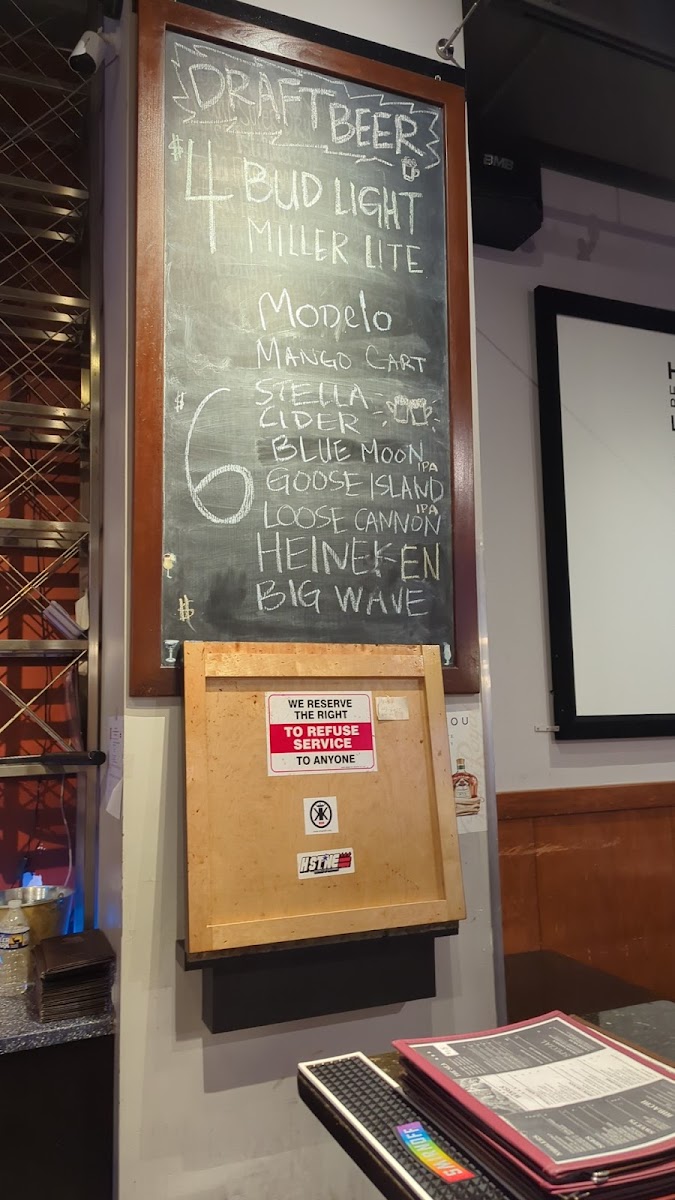 DRAFT BEER
$4 BUD LIGHT
MILLER LITE
Modelo
MANGO CART
$6 STELLA
CIDER
BLUE MOON
GOOSE ISLAND IPA
LOOSE CANNON IPA
HEINEKEN
BIG WAVE
$
BMB
WE RESERVE
THE RIGHT
TO REFUSE
SERVICE
TO ANYONE
OU
SMIRNOFF